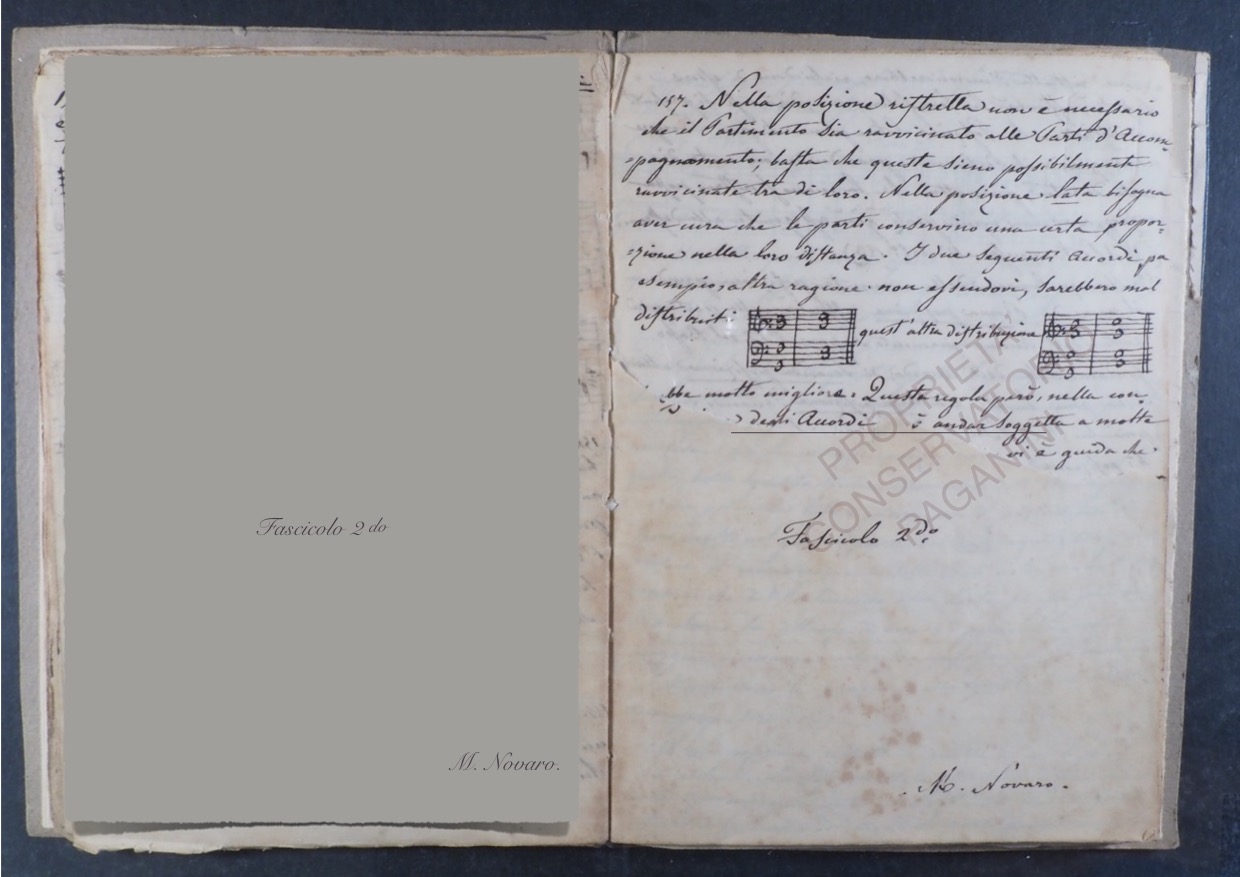 Fascicolo 2do
M. Novaro.
157. Nella posizione ristretta non è necessario
che il Partimento sia ravvicinato alle Parti d'Accom=
=pagnamento; basta che queste sieno possibilmente
ravvicinate trà di loro. Nella posizione lata bisogna
aver cura che le parti conservino una certa propor=
=zione nella loro distanza. I due seguenti Accordi pa
esempio, altra ragione non essendovi, sarebbero mal
distribuiti: quest'altra distribuzione
ebbe molto migliore. Questa regola però, nella con=
degli Accordi è andar soggetta a molte
vi è guida che
PROPRIETA'
CONSERVATORIO
PAGANINI
Fascicolo 2do
M. Novaro.